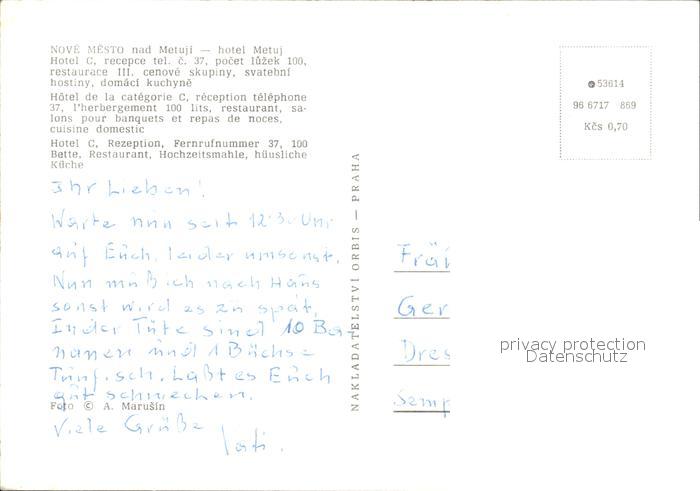 NOVÉ MĚSTO nad Metují — hotel Metuj
Hotel C, recepce tel. č. 37, počet lůžek 100,
restaurace III. cenové skupiny, svatební
hostiny, domácí kuchyně
Hôtel de la catégorie C, réception téléphone
37, l'herbergement 100 lits, restaurant, sa-
lons pour banquets et repas de noces,
cuisine domestic
Hotel C, Rezeption, Fernrufnummer 37, 100
Bette, Restaurant, Hochzeitsmahle, häusliche
Küche
Ihr Lieben!
Warte nun seit 12.30 Uhr
auf Euch, leider umsonst.
Nun muß ich nach Haus
sonst wird es zu spät.
In der Tüte sind 10 Ba-
nanen und 1 Büchse
Tunfisch. Laßt es Euch
gut schmecken.
Foto © A. Marušin
Viele Grüße
Vati.
NAKLADATELSTVÍ ORBIS — PRAHA
53614
96 6717 869
Kčs 0,70
Fräu
Ger
Dres
Semp
privacy protection
Datenschutz